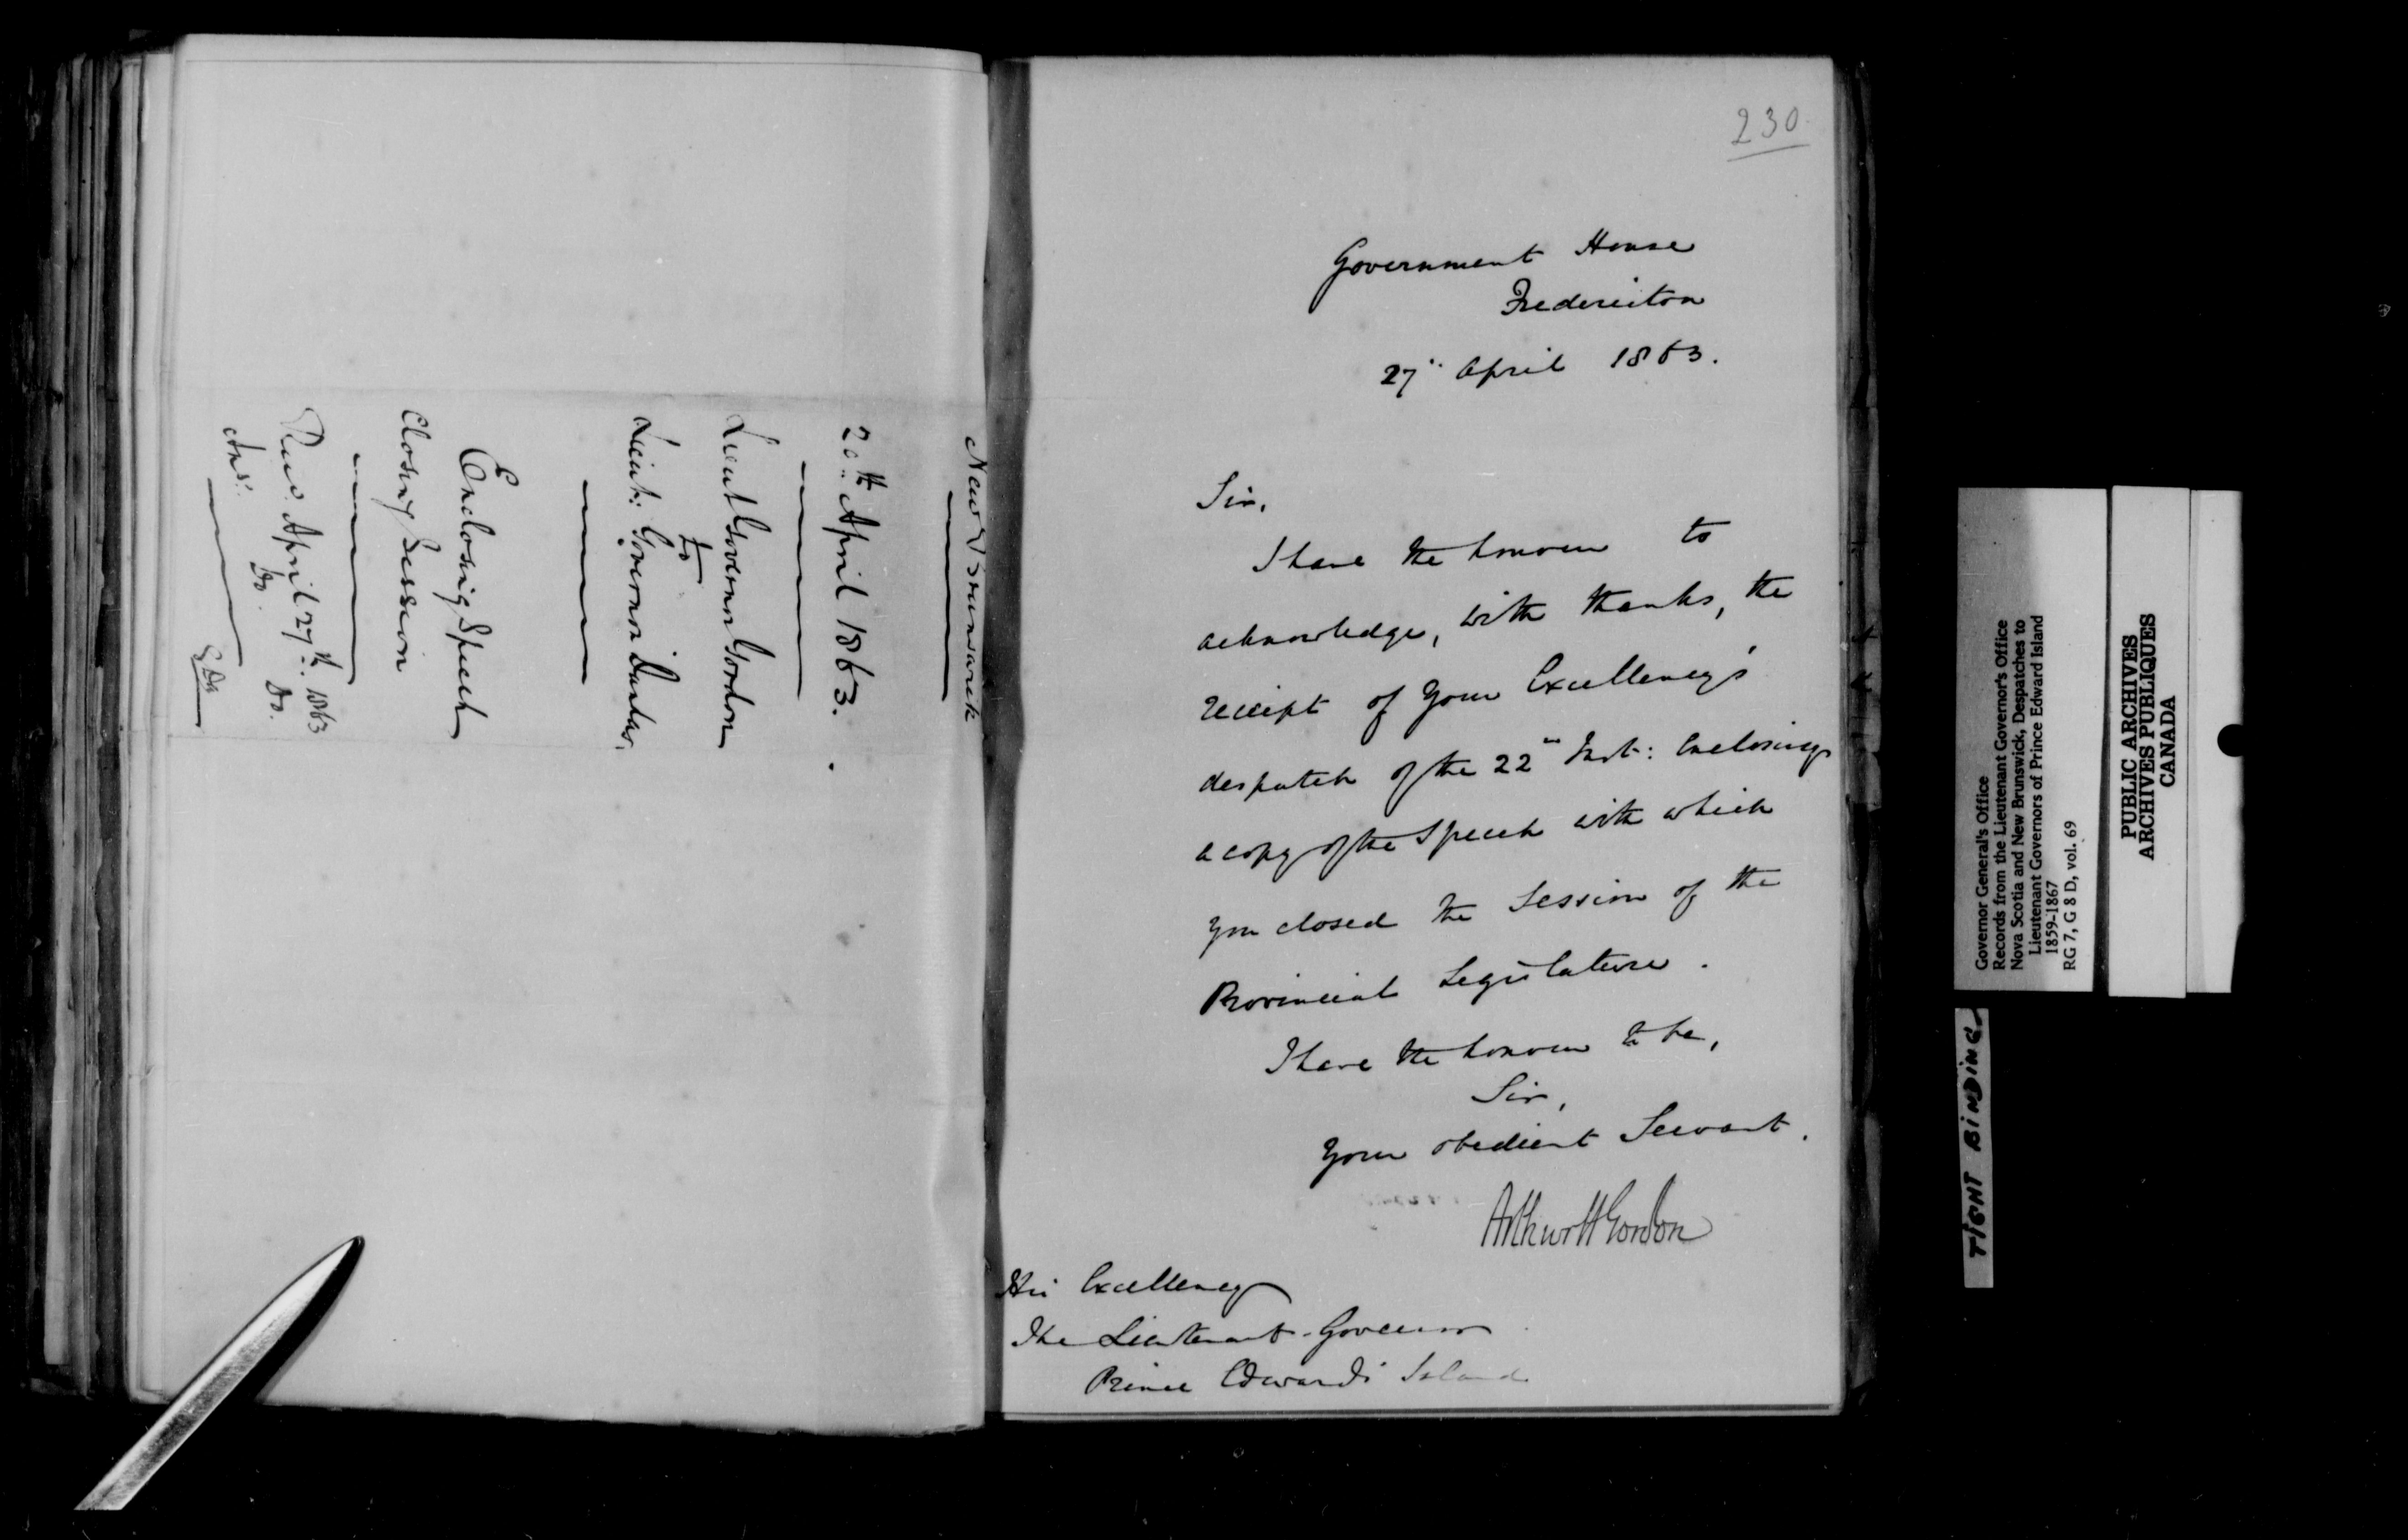 New Brunswick
20th April 1863.
Lieut Governor Gordon
to
Lieut: Governor Dundas.
Enclosing Speech
Closing Session
Recd. April 27th. 1863
Ansd. Do. Do.
230
Government House
Fredericton
27" April 1863.
Sir,
I have the honour to
acknowledge, with thanks, the
receipt of Your Excellency's
despatch of the 22" Inst: enclosing
a copy of the Speech with which
you closed the Session of the
Provincial Legislature.
I have the honour to be,
Sir,
Your obedient Servant.
Arthur H Gordon
His Excellency
The Lieutenant-Governor
Prince Edward's Island
Governor General's Office
Records from the Lieutenant Governor's Office
Nova Scotia and New Brunswick, Despatches to
Lieutenant Governors of Prince Edward Island
1859-1867
RG 7, G 8 D, vol. 69
PUBLIC ARCHIVES
ARCHIVES PUBLIQUES
CANADA
TIGHT BINDING